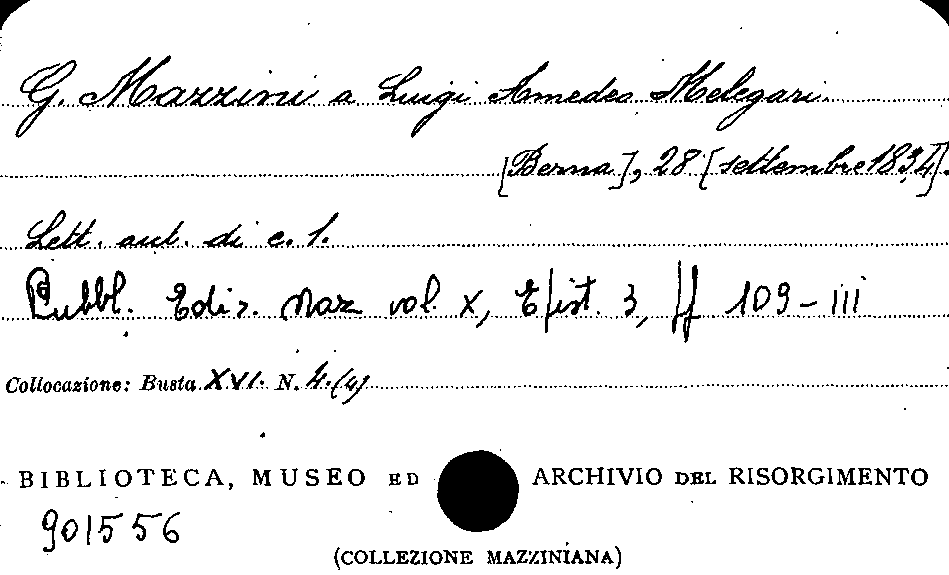 G. Mazzini a Luigi Amedeo Melegari.
[Berna], 28 [settembre 1834].
Lett. aut. di c. 1.
Pubbl. Ediz. Naz vol. X, Epist. 3, pp 109-111
Collocazione: Busta XVI. N. 4.(4)
BIBLIOTECA, MUSEO ED ARCHIVIO DEL RISORGIMENTO
901556
(COLLEZIONE MAZZINIANA)